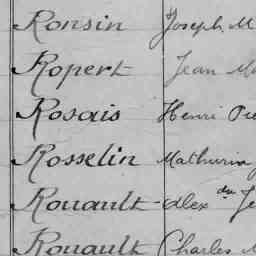 Ronsin Joseph M
Ropert Jean Ma
Rosais Henri Pie
Rosselin Mathurin
Rouault - Alex du Je
Rouault Charles M